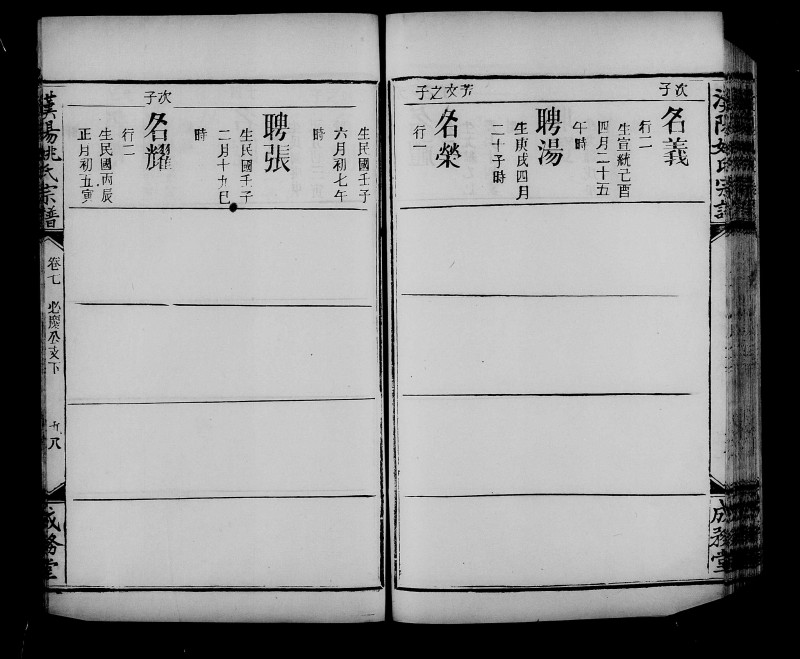 漢陽姚氏宗譜
成務堂
次子
名義
行二
生宣統己酉
四月二十五
午時
聘湯
生庚戌四月
二十子時
芳文之子
名榮
行一
生民國壬子
六月初七午
時
聘張
生民國壬子
二月十九巳
時
次子
名耀
行二
生民國丙辰
正月初五寅
漢陽姚氏宗譜
卷七
必慶公支下
九八
成務堂